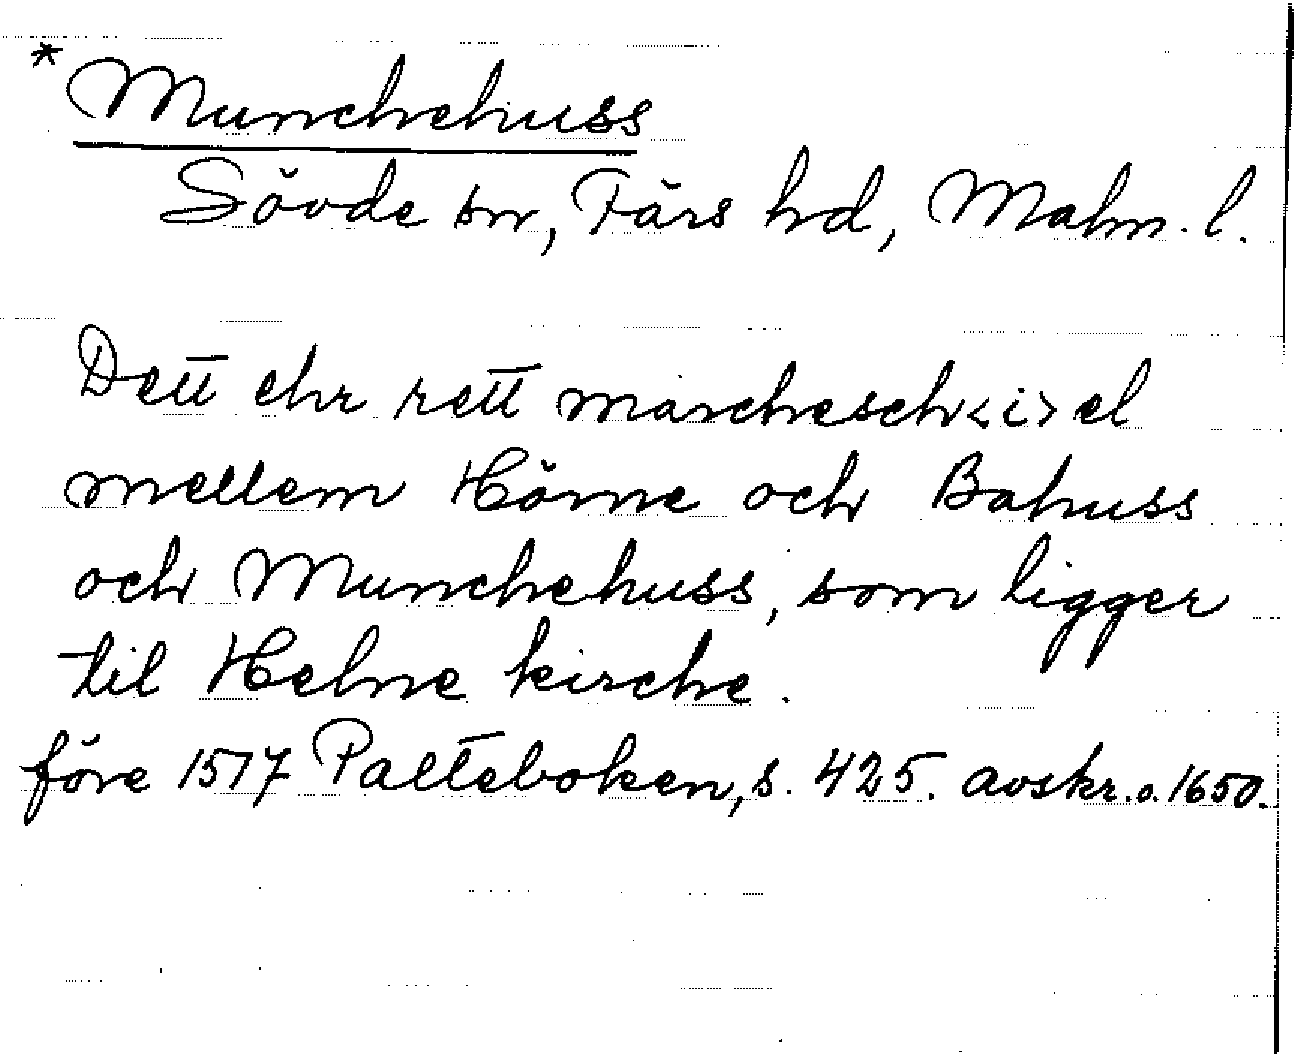 * Munchehuss
Sövde sn, Färs hd, Malm. l.
Dett ehr rett marchesch<i>el
mellem Hörne och Bahuss
och Munchehuss, som ligger
til Helne kirche.
före 1517 Palteboken, s. 425. avskr. o. 1650.